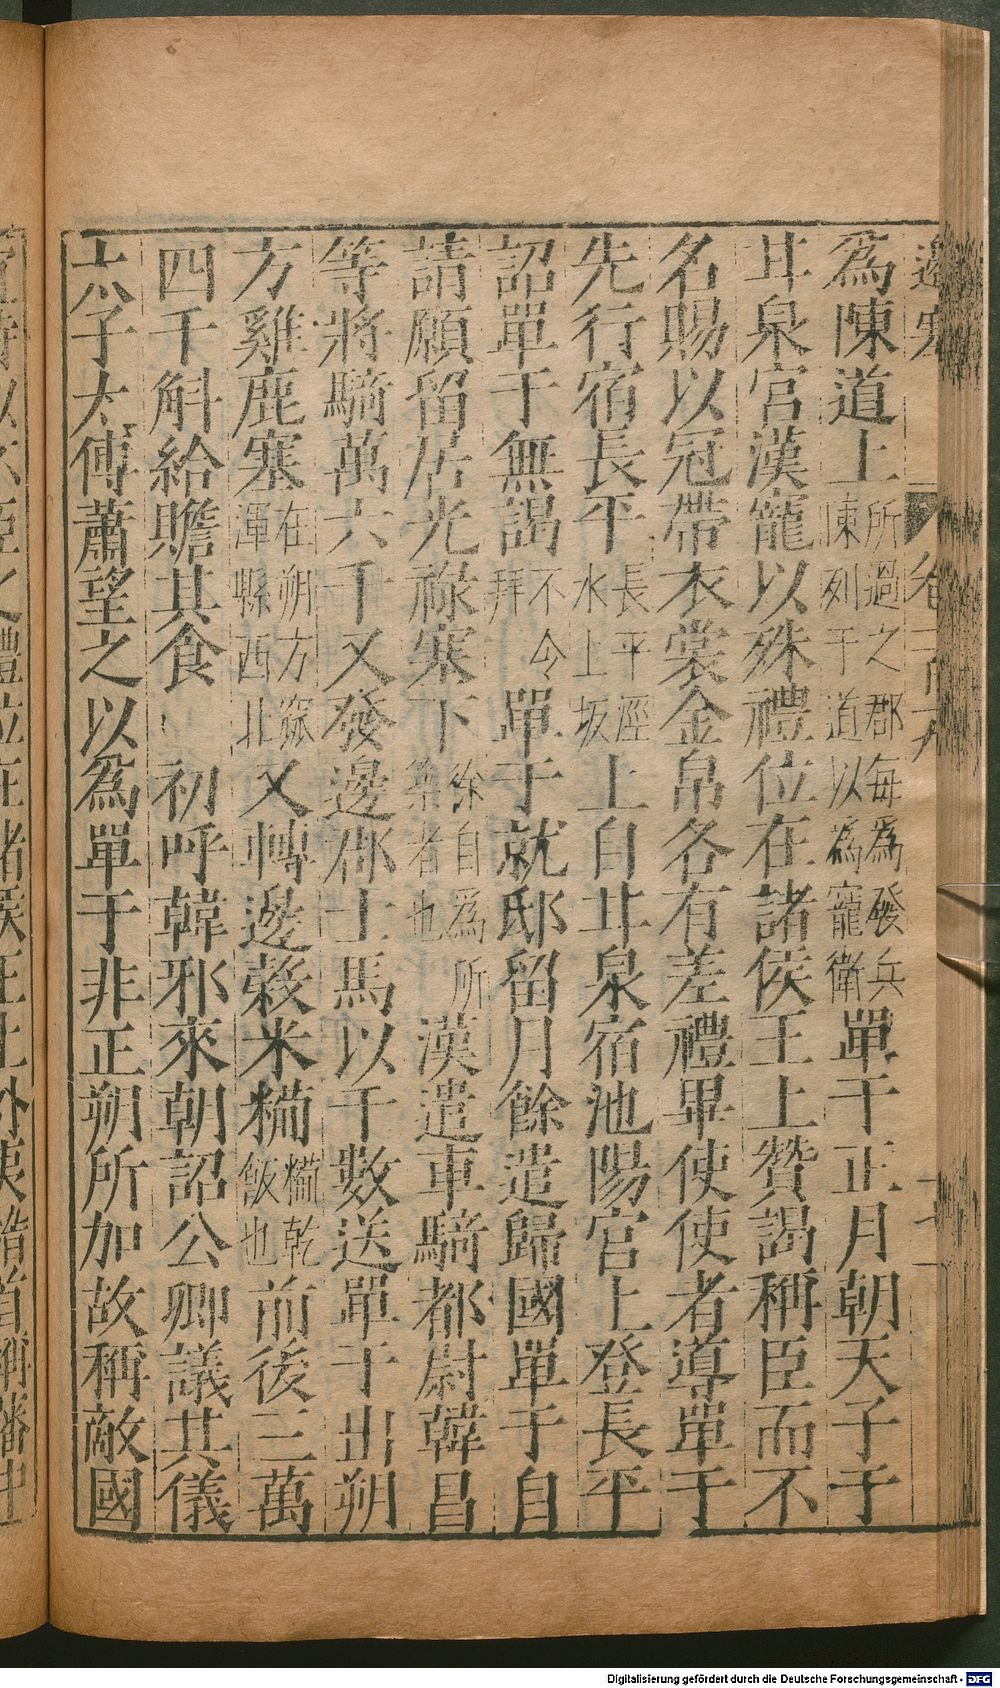 為陳道上所過之郡每為發兵陳列于道以為寵衛單于正月朝天子于
甘泉宮漢寵以殊禮位在諸侯王上贊謁稱臣而不
名賜以冠帶衣裳金帛各有差禮畢使使者導單于
先行宿長平長平涇水上坂上自甘泉宿池陽宮上登長平
詔單于無謁不令拜單于就邸留月餘遣歸國單于自
請願留居光祿塞下徐自為所築者也漢遣車騎都尉韓昌
等將騎萬六千又發邊郡士馬以千數送單于出朔
方雞鹿塞在朔方窳渾縣西北又轉邊穀米糒糒乾飯也前後三萬
四千斛給贍其食 初呼韓邪來朝詔公卿議其儀
太子太傅蕭望之以為單于非正朔所加故稱敵國
Digitalisierung gefördert durch die Deutsche Forschungsgemeinschaft - DFG